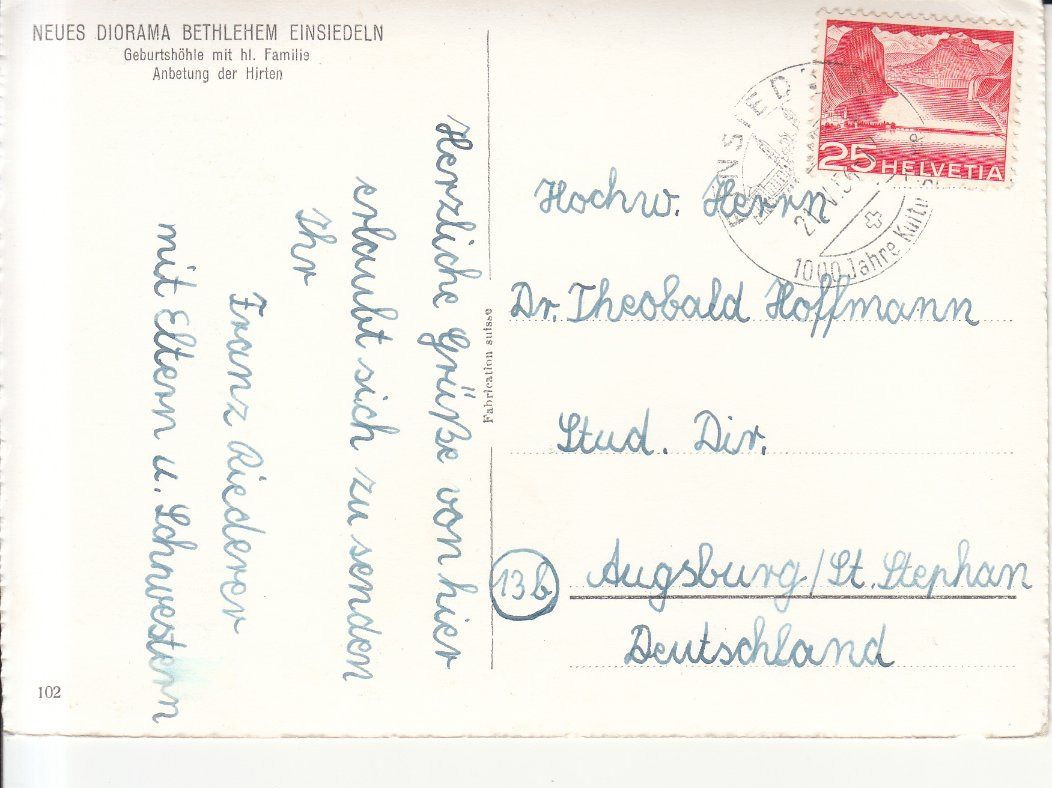 NEUES DIORAMA BETHLEHEM EINSIEDELN
Geburtshöhle mit hl. Familie
Anbetung der Hirten
Herzliche Grüße von hier
erlaubt sich zu senden
Ihr
Franz Riederer
mit Eltern u. Schwestern
102
Fabrication suisse
25 HELVETIA
1000 Jahre
Hochw. Herrn
Dr. Theobald Hoffmann
Stud. Dir.
13b Augsburg/St. Stephan
Deutschland